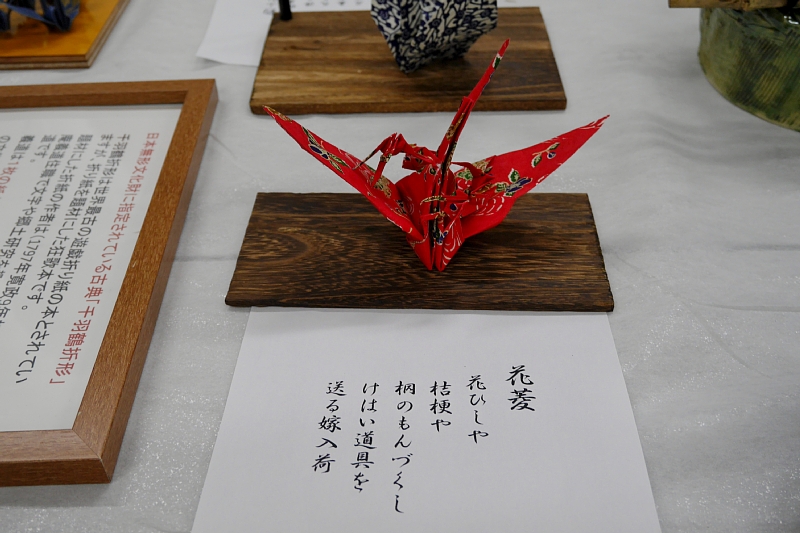 花菱
花ひしや
桔梗や
柄のもんづくし
けはい道具を
送る嫁入荷
日本無形文化財に指定されている古典「千羽鶴折形」
千羽鶴折形は世界最古の遊戯折り紙の本とされてい
ますが、折り紙を題材にした狂歌本です。
題材にした折り紙の作者は(1797年寛政9年